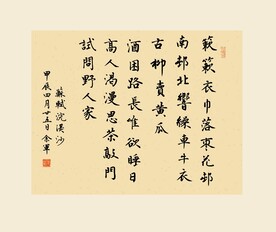 簌簌衣巾落棗花邨
南邨北響繰車牛衣
古柳賣黃瓜
酒困路長惟欲睡日
高人渴漫思茶敲門
試問野人家
蘇軾浣溪沙
甲辰四月廿五日